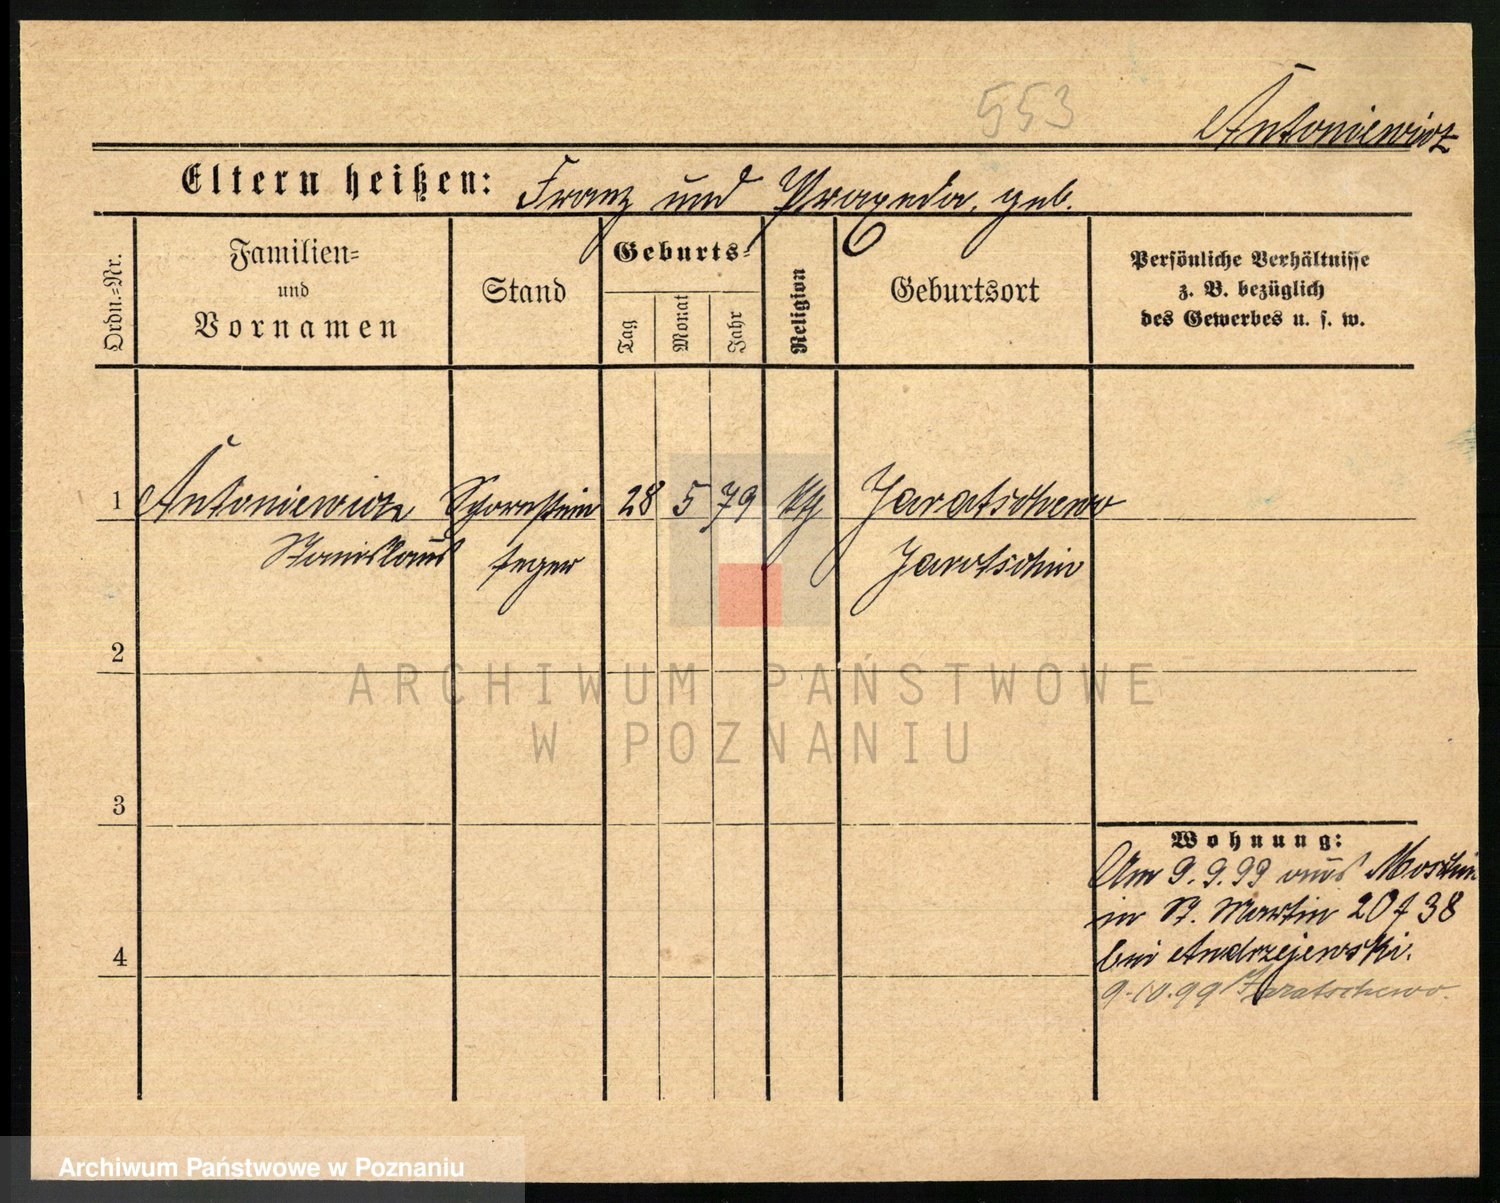 553
Antoniewicz
Eltern heißen: Franz und Praxeda, geb.
Ordn.=Nr.
Familien=
und
Vornamen
Stand
Geburts=
Tag
Monat
Jahr
Religion
Geburtsort
Persönliche Verhältnisse
z. B. bezüglich
des Gewerbes u. s. w.
1 Antoniewicz Schornstein 28 5 79 kth Jaratschewo
Stanislaus feger Jarotschin
2
3
4
Wohnung:
Am 9.9.99 aus Moschin
in St. Martin 20 f 38
bei Andrzejewski.
9.10.99 Jaratschewo.
ARCHIWUM PAŃSTWOWE
W POZNANIU
Archiwum Państwowe w Poznaniu